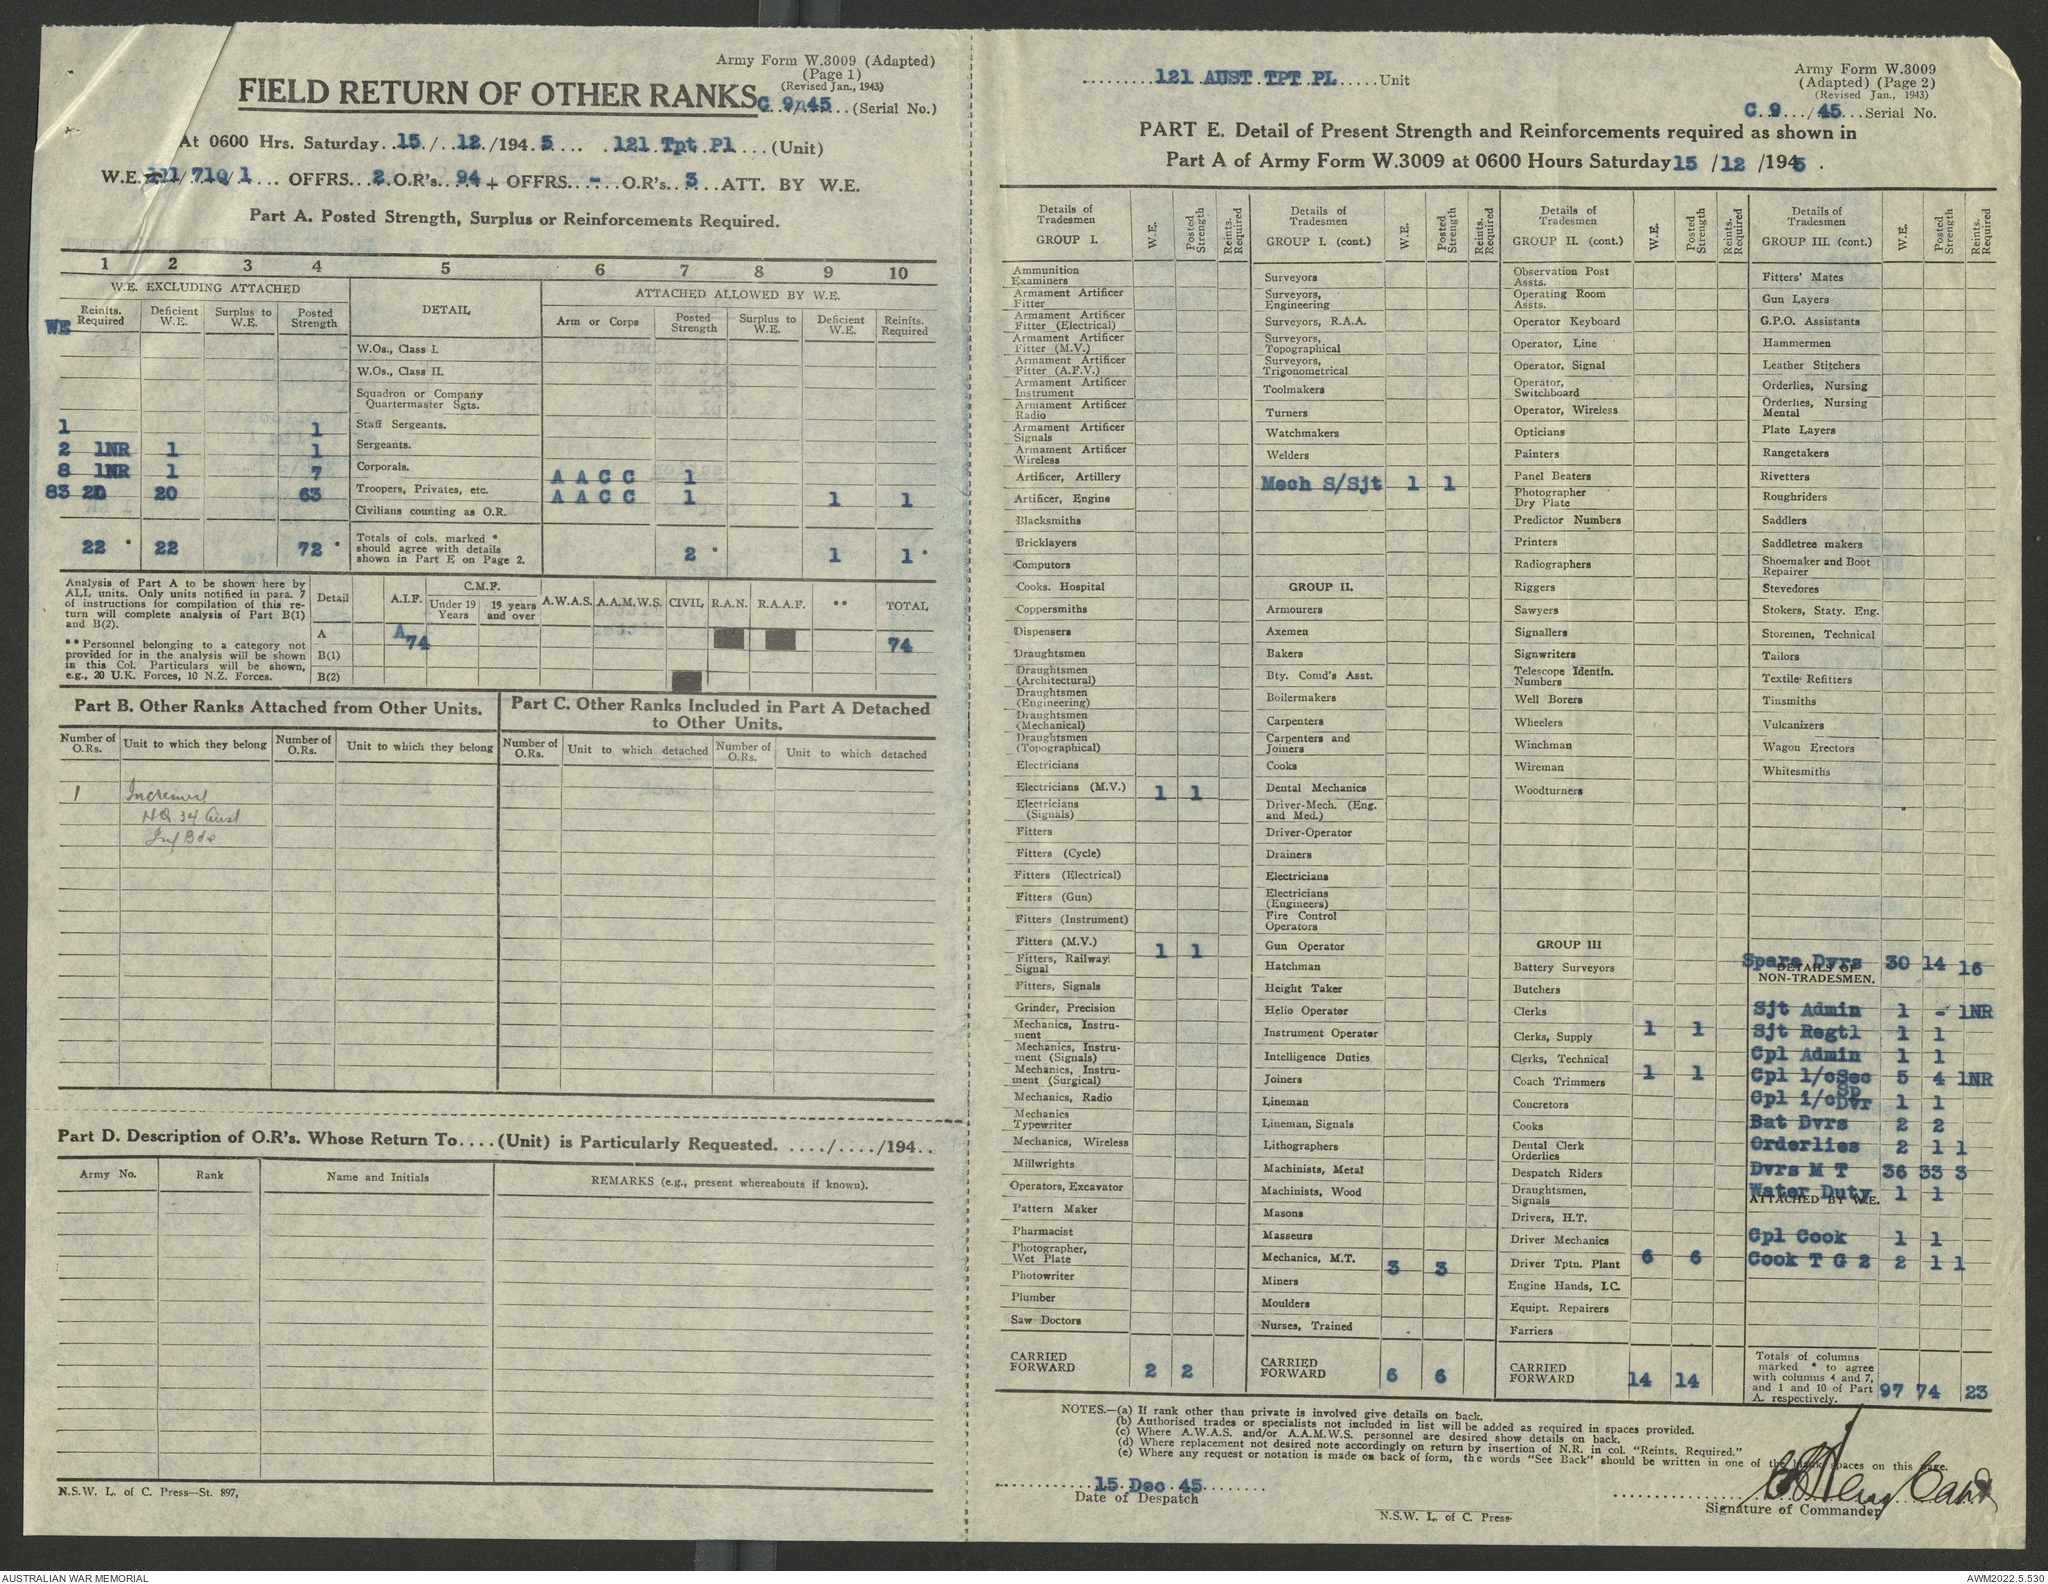 Army Form W.3009 (Adapted)
(Page 1)
(Revised Jan., 1943)
FIELD RETURN OF OTHER RANKS C.9/45..(Serial No.)
At 0600 Hrs. Saturday..15./..12./194.5.... .121.Tpt.Pl...(Unit)
/710/1... OFFRS...2.O.R's..94+ OFFRS..-...O.R's..3...ATT. BY W.E.
Part A. Posted Strength, Surplus or Reinforcements Required.
1 2 3 4 5 6 7 8 9 10
W.E. EXCLUDING ATTACHED DETAIL ATTACHED ALLOWED BY W.E.
WE Reinfts. Required Deficient W.E. Surplus to W.E. Posted Strength Arm or Corps Posted Strength Surplus to W.E. Deficient W.E. Reinfts. Required
W.Os., Class I.
W.Os., Class II.
Squadron or Company Quartermaster Sgts.
1 1 Staff Sergeants.
2 1NR 1 1 Sergeants.
8 1NR 1 7 Corporals. A A C C 1
83 20 20 63 Troopers, Privates, etc. A A C C 1 1 1
Civilians counting as O.R.
22 * 22 72 * Totals of cols. marked * should agree with details shown in Part E on Page 2. 2 * 1 1 *
Analysis of Part A to be shown here by
ALL units. Only units notified in para. 7
of instructions for compilation of this re-
turn will complete analysis of Part B(1)
and B(2).
** Personnel belonging to a category not
provided for in the analysis will be shown
in this Col. Particulars will be shown,
e.g., 20 U.K. Forces, 10 N.Z. Forces.
Detail A.I.F. C.M.F. Under 19 Years 19 years and over A.W.A.S. A.A.M.W.S. CIVIL R.A.N. R.A.A.F. ** TOTAL
A A 74 74
B(1)
B(2)
Part B. Other Ranks Attached from Other Units.
Number of O.Rs. Unit to which they belong Number of O.Rs. Unit to which they belong
1
HQ 34 Aust
Inf Bde
Part C. Other Ranks Included in Part A Detached
to Other Units.
Number of O.Rs. Unit to which detached Number of O.Rs. Unit to which detached
Part D. Description of O.R's. Whose Return To....(Unit) is Particularly Requested. ..../..../194..
Army No. Rank Name and Initials REMARKS (e.g., present whereabouts if known).
N.S.W. L. of C. Press—St. 897,
..........121.AUST.TPT.PL.....Unit
Army Form W.3009
(Adapted) (Page 2)
(Revised Jan., 1943)
C.9.../45...Serial No.
PART E. Detail of Present Strength and Reinforcements required as shown in
Part A of Army Form W.3009 at 0600 Hours Saturday 15 /12 /1945 .
Details of Tradesmen W.E. Posted Strength Reints. Required
GROUP I.
Ammunition Examiners
Armament Artificer Fitter
Armament Artificer Fitter (Electrical)
Armament Artificer Fitter (M.V.)
Armament Artificer Fitter (A.F.V.)
Armament Artificer Instrument
Armament Artificer Radio
Armament Artificer Signals
Armament Artificer Wireless
Artificer, Artillery
Artificer, Engine
Blacksmiths
Bricklayers
Computors
Cooks. Hospital
Coppersmiths
Dispensers
Draughtsmen
Draughtsmen (Architectural)
Draughtsmen (Engineering)
Draughtsmen (Mechanical)
Draughtsmen (Topographical)
Electricians
Electricians (M.V.) 1 1
Electricians (Signals)
Fitters
Fitters (Cycle)
Fitters (Electrical)
Fitters (Gun)
Fitters (Instrument)
Fitters (M.V.) 1 1
Fitters, Railway Signal
Fitters, Signals
Grinder, Precision
Mechanics, Instrument
Mechanics, Instrument (Signals)
Mechanics, Instrument (Surgical)
Mechanics, Radio
Mechanics Typewriter
Mechanics, Wireless
Millwrights
Operators, Excavator
Pattern Maker
Pharmacist
Photographer, Wet Plate
Photowriter
Plumber
Saw Doctors
CARRIED FORWARD 2 2
Details of Tradesmen W.E. Posted Strength Reints. Required
GROUP I. (cont.)
Surveyors
Surveyors, Engineering
Surveyors, R.A.A.
Surveyors, Topographical
Surveyors, Trigonometrical
Toolmakers
Turners
Watchmakers
Welders
Mech S/Sjt 1 1
GROUP II.
Armourers
Axemen
Bakers
Bty. Comd's Asst.
Boilermakers
Carpenters
Carpenters and Joiners
Cooks
Dental Mechanics
Driver-Mech. (Eng. and Med.)
Driver-Operator
Drainers
Electricians
Electricians (Engineers)
Fire Control Operators
Gun Operator
Hatchman
Height Taker
Helio Operator
Instrument Operator
Intelligence Duties
Joiners
Lineman
Lineman, Signals
Lithographers
Machinists, Metal
Machinists, Wood
Masons
Masseurs
Mechanics, M.T. 3 3
Miners
Moulders
Nurses, Trained
CARRIED FORWARD 6 6
Details of Tradesmen W.E. Posted Strength Reints. Required
GROUP II. (cont.)
Observation Post Assts.
Operating Room Assts.
Operator Keyboard
Operator, Line
Operator, Signal
Operator, Switchboard
Operator, Wireless
Opticians
Painters
Panel Beaters
Photographer Dry Plate
Predictor Numbers
Printers
Radiographers
Riggers
Sawyers
Signallers
Signwriters
Telescope Identfn. Numbers
Well Borers
Wheelers
Winchman
Wireman
Woodturners
GROUP III
Battery Surveyors
Butchers
Clerks
Clerks, Supply 1 1
Clerks, Technical
Coach Trimmers 1 1
Concretors
Cooks
Dental Clerk Orderlies
Despatch Riders
Draughtsmen, Signals
Drivers, H.T.
Driver Mechanics
Driver Tptn. Plant 6 6
Engine Hands, I.C.
Equipt. Repairers
Farriers
CARRIED FORWARD 14 14
Details of Tradesmen W.E. Posted Strength Reints. Required
GROUP III. (cont.)
Fitters' Mates
Gun Layers
G.P.O. Assistants
Hammermen
Leather Stitchers
Orderlies, Nursing
Orderlies, Nursing Mental
Plate Layers
Rangetakers
Rivetters
Roughriders
Saddlers
Saddletree makers
Shoemaker and Boot Repairer
Stevedores
Stokers, Staty. Eng.
Storemen, Technical
Tailors
Textile Refitters
Tinsmiths
Vulcanizers
Wagon Erectors
Whitesmiths
Spare Dvrs 30 14 16
DETAILS OF NON-TRADESMEN.
Sjt Admin 1 - 1NR
Sjt Regtl 1 1
Cpl Admin 1 1
Cpl i/cSec 5 4 1NR
Cpl i/c Sp Dvr 1 1
Bat Dvrs 2 2
Orderlies 2 1 1
Dvrs M T 36 33 3
Water Duty 1 1
ATTACHED BY W.E.
Cpl Cook 1 1
Cook T G 2 2 1 1
Totals of columns marked * to agree with columns 4 and 7, and 1 and 10 of Part A. respectively. 97 74 23
NOTES.—(a) If rank other than private is involved give details on back.
(b) Authorised trades or specialists not included in list will be added as required in spaces provided.
(c) Where A.W.A.S. and/or A.A.M.W.S. personnel are desired show details on back.
(d) Where replacement not desired note accordingly on return by insertion of N.R. in col. "Reints. Required."
(e) Where any request or notation is made on back of form, the words "See Back" should be written in one of the blank spaces on this page.
15.Dec.45
Date of Despatch
N.S.W. L. of C. Press
Capt
Signature of Commander
AUSTRALIAN WAR MEMORIAL
AWM2022.5.530